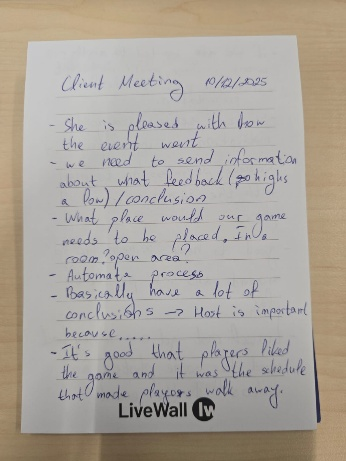 Client Meeting 10/12/2025
- She is pleased with how
the event went
- we need to send information
about what feedback (highs
a low) / conclusion
- What place would our game
needs to be placed. In a
room? open area?
- Automate process
- Basically have a lot of
conclusions → Host is important
because.....
- It's good that players liked
the game and it was the schedule
that made players walk away.
LiveWall lw